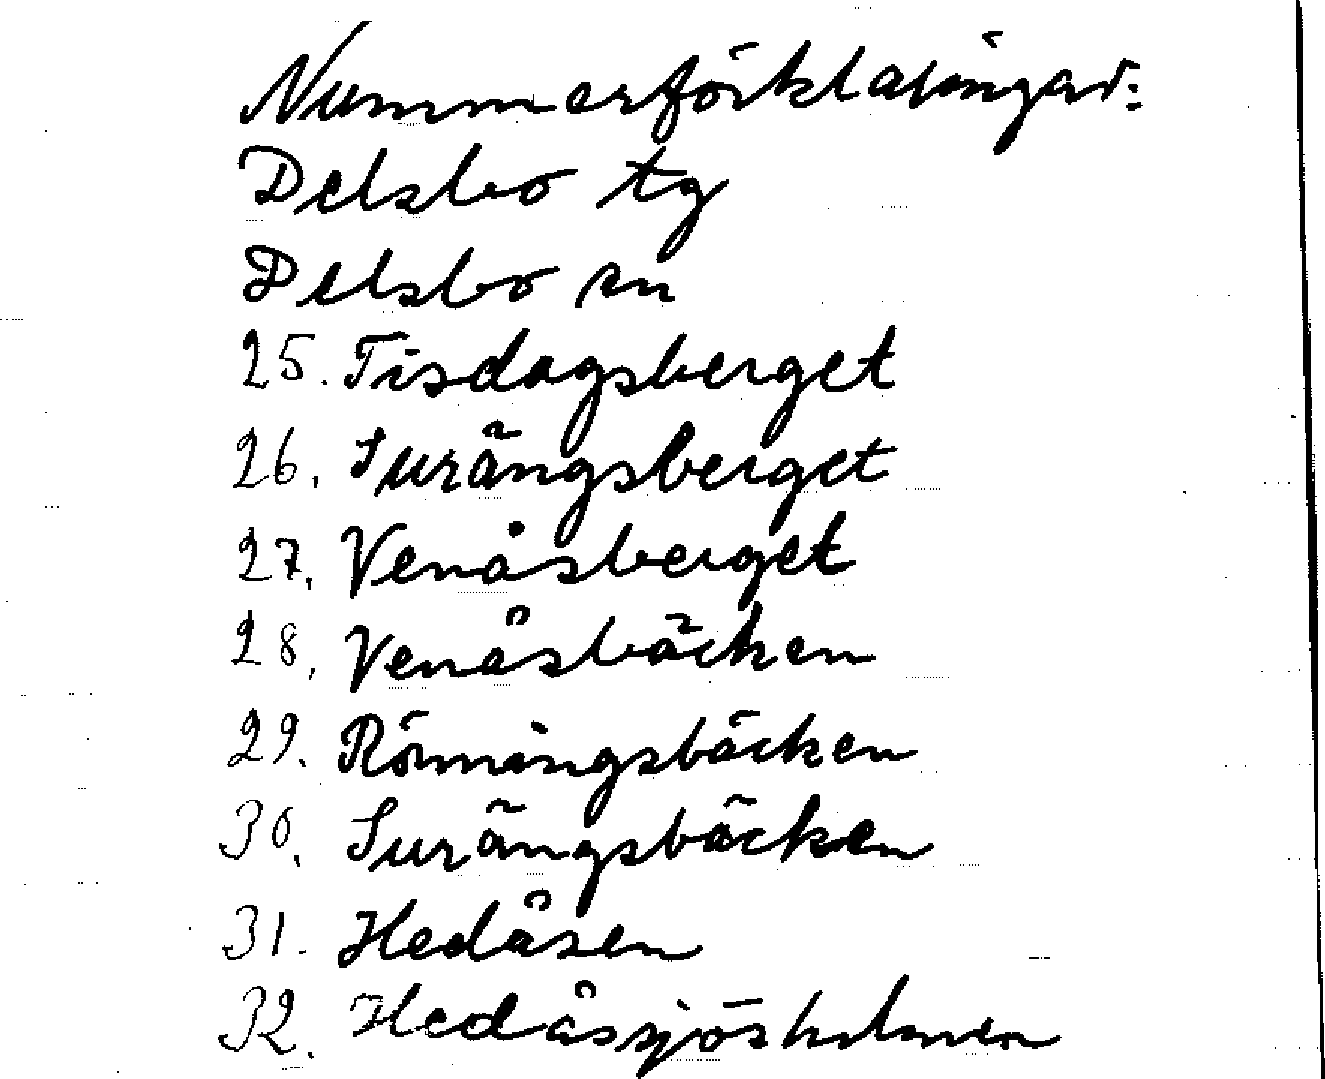 Nummerförklaringar:
Delsbo tg
Delsbo sn
25. Tisdagsberget
26. Surängsberget
27. Venåsberget
28. Venåsbäcken
29. Rönningsbäcken
30. Surängsbäcken
31. Hedåsen
32. Hedåssjösholmen